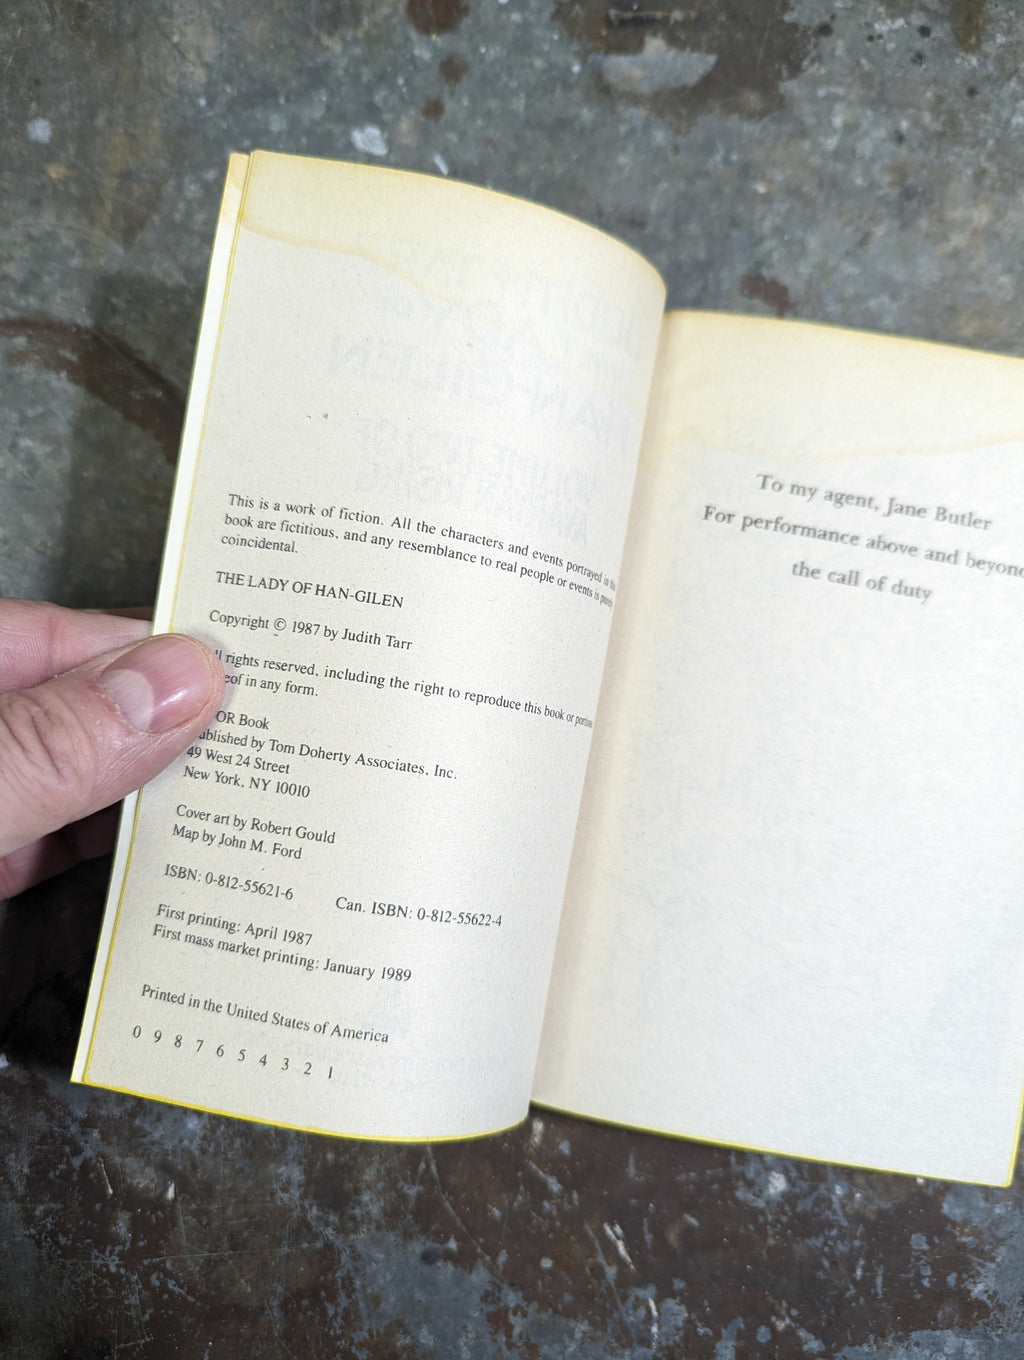 This is a work of fiction. All the characters and events portrayed in this
book are fictitious, and any resemblance to real people or events is purely
coincidental.
THE LADY OF HAN-GILEN
Copyright © 1987 by Judith Tarr
ll rights reserved, including the right to reproduce this book or portions
eof in any form.
OR Book
ublished by Tom Doherty Associates, Inc.
49 West 24 Street
New York, NY 10010
Cover art by Robert Gould
Map by John M. Ford
ISBN: 0-812-55621-6 Can. ISBN: 0-812-55622-4
First printing: April 1987
First mass market printing: January 1989
Printed in the United States of America
0 9 8 7 6 5 4 3 2 1
To my agent, Jane Butler
For performance above and beyond
the call of duty